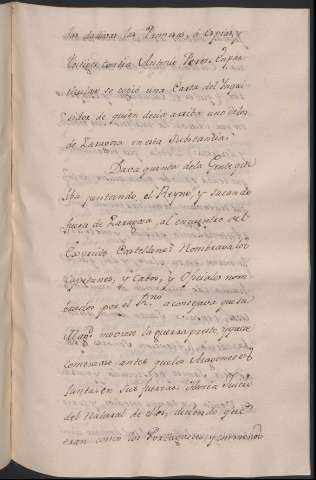 las dadivas las Promesas, ó copias, y
testigos contra Antonio Perez. En par-
ticular se cogió una Carta del Inqui-
sidor de quien decia arriba uno de los
de Zaragoza en esta Substancia.
Dava quenta de la Gente que
iba juntando el Reyno, y sacando
fuera de Zaragoza, al encuentro del
Exercito Castellano: Nombrava los
Capitanes, y Cabos, y Oficiales nom-
brados por el R.no aconsejava que su
Mag.d moviese la guerra presto, y que
comenzase antes que los Aragoneses
juntasen sus fuerzas. Hacia Juicio
del Natural de ellos, diciendo que
eran como los Portugueses, y entrando